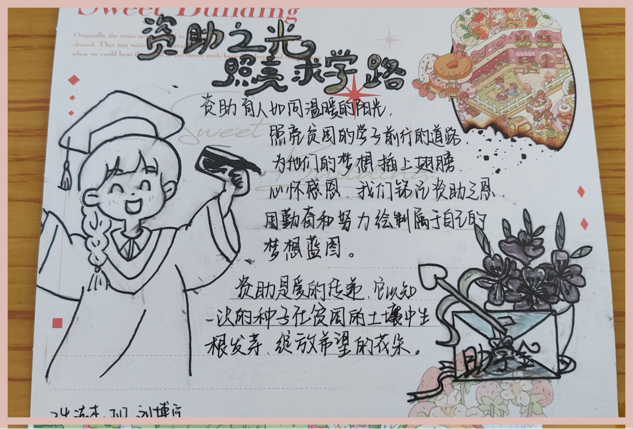 Sweet Building
资助之光
照亮求学路
资助育人如同温暖的阳光,
照亮贫困的学子前行的道路
为他们的梦想插上翅膀
心怀感恩,我们铭记资助之恩
用勤奋和努力绘制属于自己的
梦想蓝图。
资助是爱的传递,它以知
识的种子在贫困的土壤中生
根发芽,绽放希望的花朵。
助学金